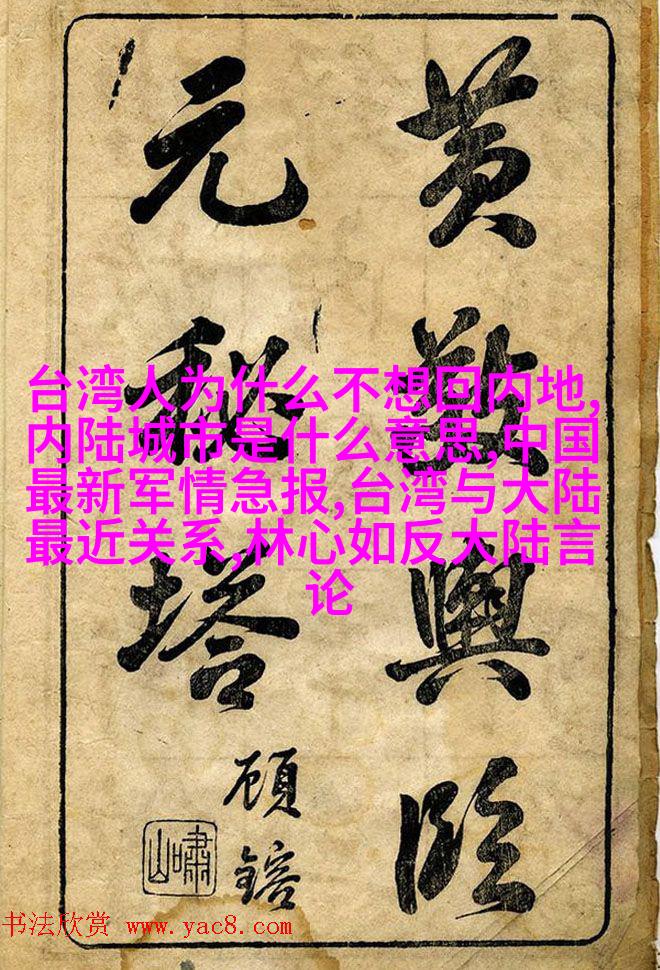 黄敬輿臨
元秘塔
顧鎔
嘯山
台湾人为什么不想回内地,
内陆城市是什么意思,中国
最新军情急报,台湾与大陆
最近关系,林心如反大陆言
论
书法欣赏 www.yac8.com